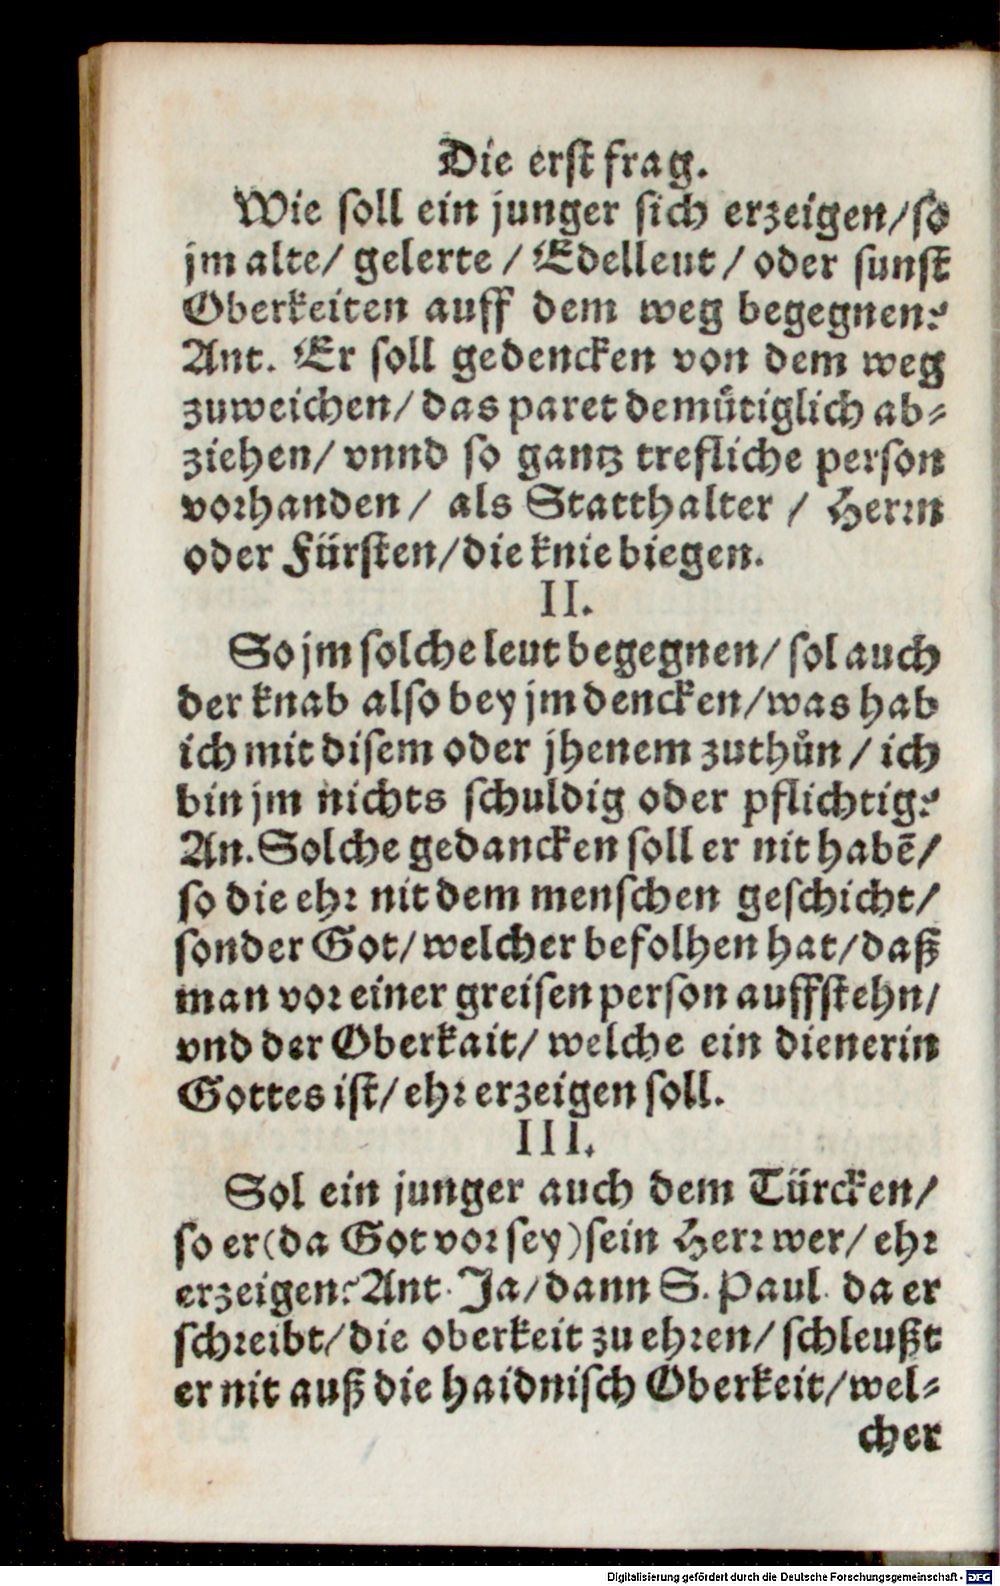 Die erst frag.
Wie soll ein junger sich erzeigen/so
jm alte/ gelerte / Edelleut / oder sunst
Oberkeiten auff dem weg begegnen?
Ant. Er soll gedencken von dem weg
zuweichen/ das paret demütiglich ab-
ziehen/ vnnd so gantz trefliche person
vorhanden / als Statthalter / Herrn
oder Fürsten/die knie biegen.
II.
So jm solche leut begegnen/ sol auch
der knab also bey jm dencken/was hab
ich mit disem oder jhenem zuthůn / ich
bin jm nichts schuldig oder pflichtig?
An. Solche gedancken soll er nit habē/
so die ehr nit dem menschen geschicht/
sonder Got/ welcher befolhen hat/ daß
man vor einer greisen person auffstehn/
vnd der Oberkait/ welche ein dienerin
Gottes ist/ ehr erzeigen soll.
III.
Sol ein junger auch dem Türcken/
so er(da Got vor sey)sein Herr wer/ ehr
erzeigen? Ant. Ja/dann S. Paul. da er
schreibt/die oberkeit zu ehren/ schleußt
er nit auß die haidnisch Oberkeit/wel-
cher
Digitalisierung gefördert durch die Deutsche Forschungsgemeinschaft - DFG